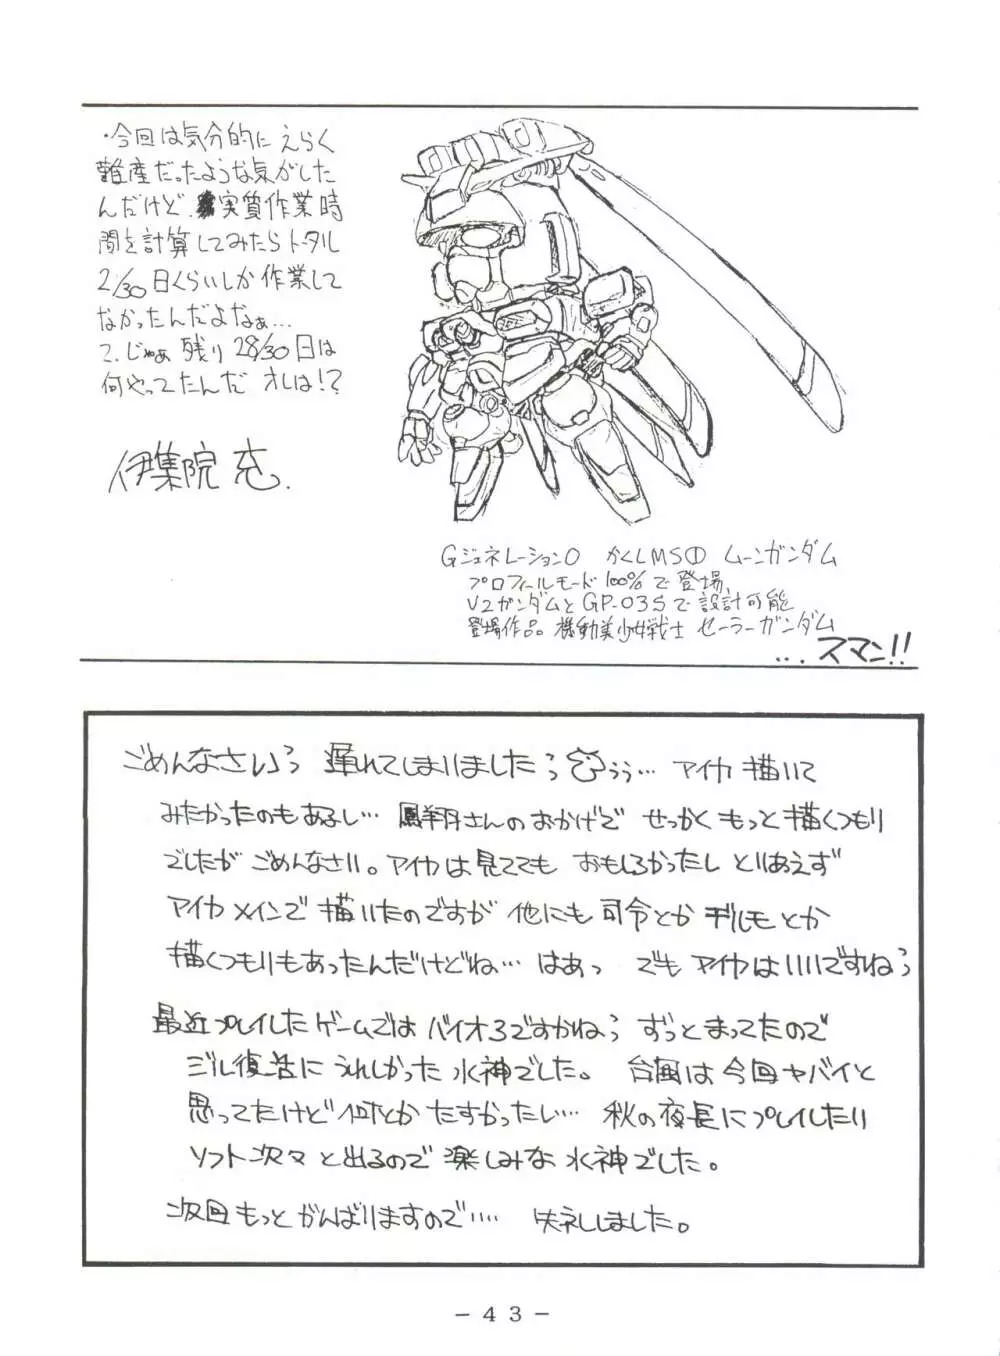 ・今回は気分的にえらく
難産だったような気がした
んだけど、実質作業時
間を計算してみたらトータル
2/30日くらいしか作業して
なかったんだよなぁ…
て、じゃぁ残り28/30日は
何やってたんだオレは!?
伊集院 充.
Gジェネレーション0 かくしMS① ムーンガンダム
プロフィールモード100%で登場、
V2ガンダムとGP-03Sで設計可能
登場作品。機動美少女戦士 セーラーガンダム
...スマン!!
ごめんなさいっ 遅れてしまいましたっ うぅ… アイカ描いて
みたかったのもあるし… 鳳翔さんのおかげで せっかくもっと描くつもり
でしたが ごめんなさい。アイカは見ててもおもしろかったし とりあえず
アイカメインで描いたのですが 他にも司令とか デルモとか
描くつもりもあったんだけどね… はあっ でもアイカはいいですねっ
最近プレイしたゲームではバイオ3ですかねっ ずっとまってたので
ジル復活にうれしかった水神でした。台風は今回ヤバイと
思ってたけど何とかたすかったい… 秋の夜長にプレイしたい
ソフト次々と出るので楽しみな水神でした。
次回もっとがんばりますので…. 失ネしました。
-43-